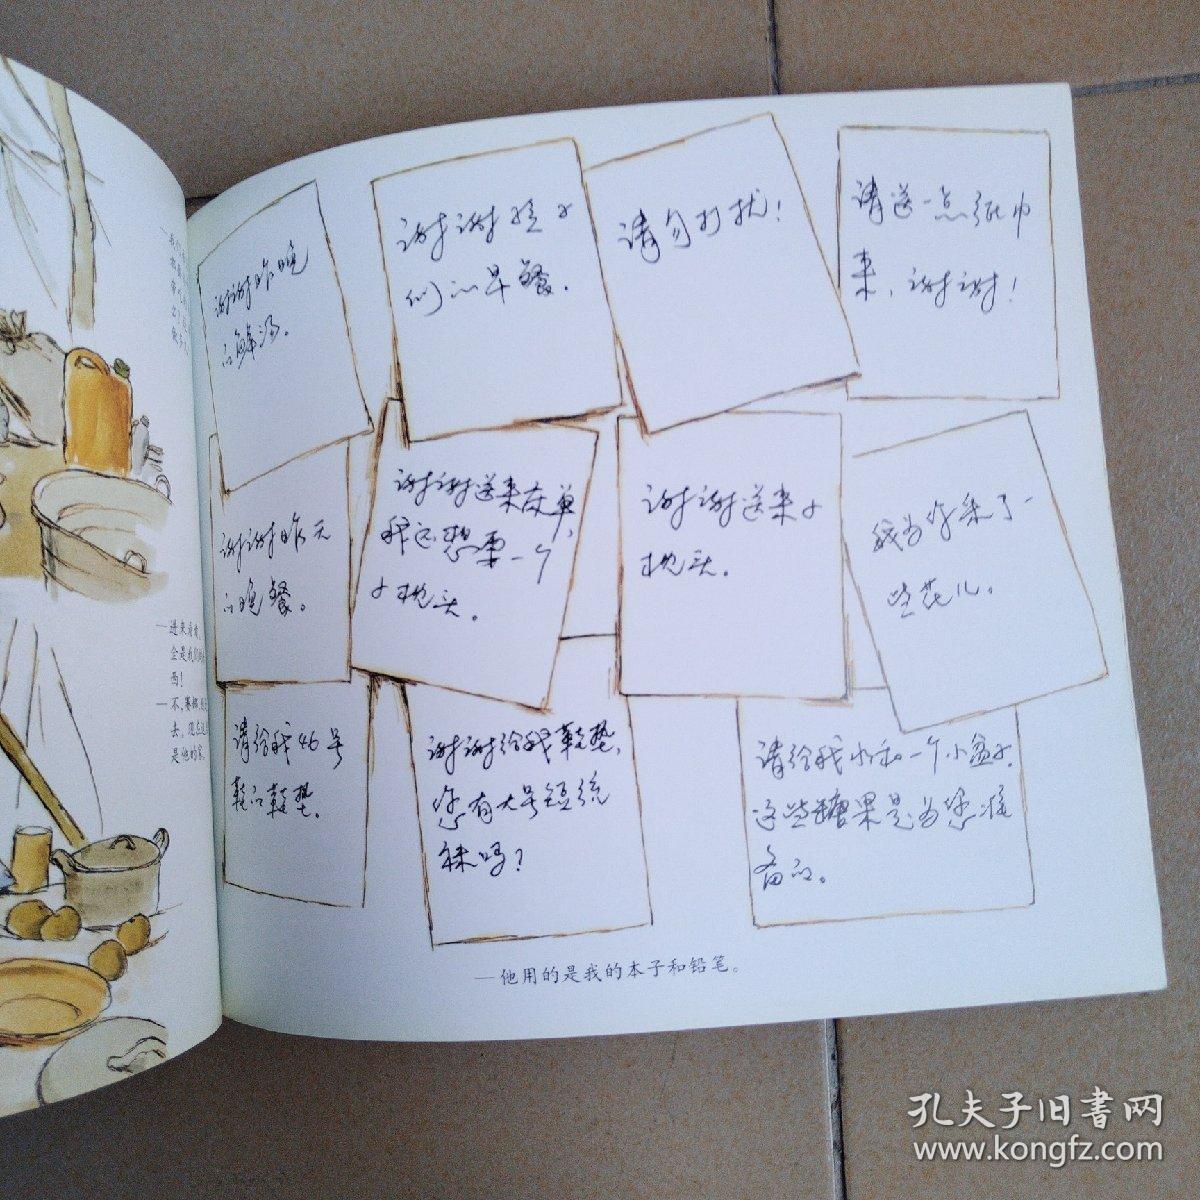 谢谢昨晚
的鲜汤。
谢谢孩子
们的早餐.
请勿打扰!
请送一点纸巾
来,谢谢!
谢谢昨天
的晚餐。
谢谢送来床单,
我还想要一个
小枕头。
谢谢送来小
枕头。
我为你采了一
些花儿。
请给我46号
鞋的鞋垫.
谢谢给我鞋垫,
您有大号短统
袜吗?
请给我水和一个小盆子.
这些糖果是为您准
备的。
—他用的是我的本子和铅笔。
—进来看看,
全是我们的东
西!
—不,赛娜,
去,现在这
是他的家.
孔夫子旧书网
www.kongfz.com